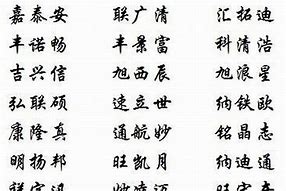 嘉泰安 联广清 汇拓迪
丰诺畅 丰景富 科清浩
吉兴信 旭西辰 旭浪星
弘联硕 速立世 纳铁欧
康隆真 通航妙 铭晶志
明扬邦 旺凯月 纳迪通